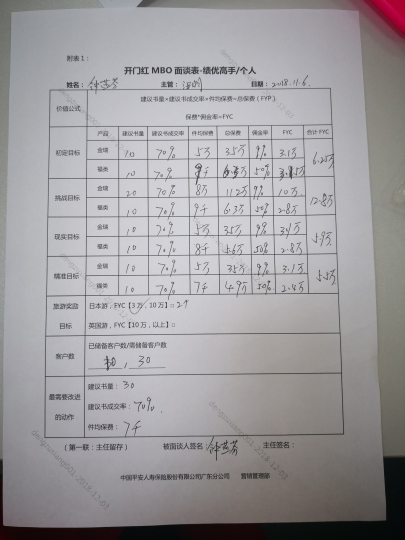 附表1：
开门红 MBO 面谈表-绩优高手/个人
姓名：钟燕芬 主管： 日期：2018.11.6.
价值公式 建议书量*建议书成交率*件均保费=总保费（FYP）
保费*佣金率=FYC
产品 建议书量 建议书成交率 件均保费 总保费 佣金率 FYC 合计 FYC
初定目标 金瑞 10 70% 5万 35万 9% 3.1万 6.25万
福类 10 70% 9千 6.3万 50%
挑战目标 金瑞 20 70% 8万 112万 9% 10万 12.8万
福类 10 70% 9千 6.3万 50% 2.8万
现实目标 金瑞 10 70% 5万 35万 9% 3.1万 5.9万
福类 10 70% 8千 5.6万 50% 2.8万
瞄准目标 金瑞 10 70% 5万 35万 9% 3.1万 5.5万
福类 10 70% 7千 4.9万 50% 2.4万
旅游奖励 日本游，FYC【3万，10万】□ 2个
目标 英国游，FYC【10万，以上】□
客户数 已储备客户数/需储备客户数
，30
最需要改进 建议书量：30
的动作 建议书成交率：70%
件均保费：7千
（第一联：主任留存） 被面谈人签名：钟燕芬 主任签名：
中国平安人寿保险股份有限公司广东分公司 营销管理部